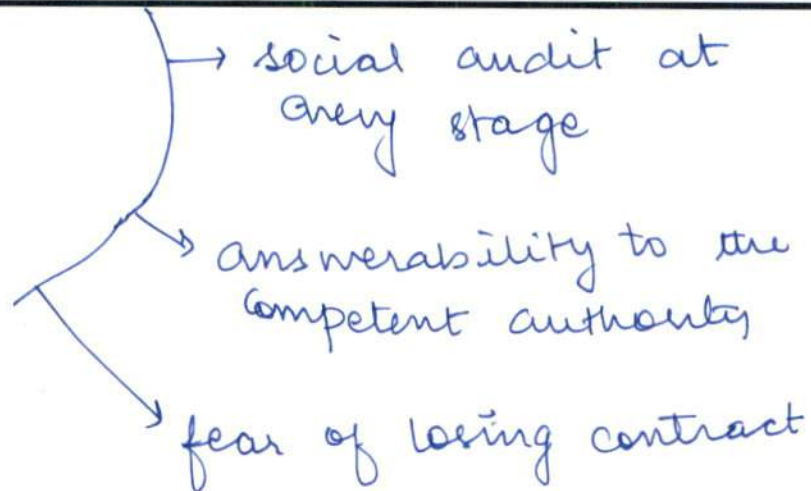 social audit at
every stage
answerability to the
competent authority
fear of losing contract